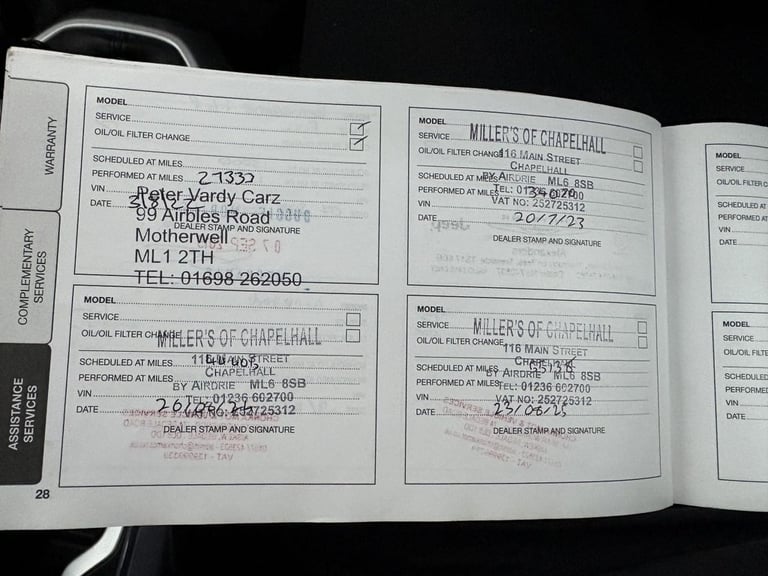 WARRANTY
COMPLEMENTARY
SERVICES
ASSISTANCE
SERVICES
MODEL
SERVICE
OIL/OIL FILTER CHANGE
SCHEDULED AT MILES
PERFORMED AT MILES
VIN
DATE
Peter Vardy Carz
99 Airbles Road
DEALER STAMP AND SIGNATURE
Motherwell
ML1 2TH
TEL: 01698 262050
MODEL
SERVICE
MILLER'S OF CHAPELHALL
OIL/OIL FILTER CHANGE
116 MAIN STREET
CHAPELHALL
SCHEDULED AT MILES
BY AIRDRIE ML6 8SB
PERFORMED AT MILES
TEL: 01236 602700
VIN
VAT NO: 252725312
DATE 20/7/23
DEALER STAMP AND SIGNATURE
MODEL
SERVICE
OIL/OIL FILTER CHANGE
MILLER'S OF CHAPELHALL
116 MAIN STREET
SCHEDULED AT MILES
CHAPELHALL
PERFORMED AT MILES
BY AIRDRIE ML6 8SB
VIN
TEL: 01236 602700
DATE
VAT NO: 252725312
DEALER STAMP AND SIGNATURE
MODEL
SERVICE
MILLER'S OF CHAPELHALL
OIL/OIL FILTER CHANGE
116 MAIN STREET
CHAPELHALL
SCHEDULED AT MILES
BY AIRDRIE ML6 8SB
PERFORMED AT MILES
TEL: 01236 602700
VIN
VAT NO: 252725312
DATE 23/06/25
DEALER STAMP AND SIGNATURE
MODEL
SERVICE
OIL/OIL FILTER C
SCHEDULED AT
PERFORMED AT
VIN
DATE
MODEL
SERVICE
OIL/OIL FILTE
SCHEDULED
PERFORMED
VIN
DATE
28